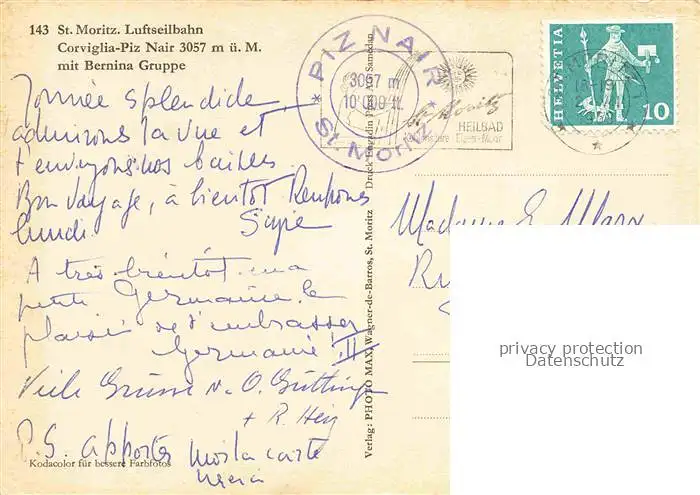 143 St. Moritz. Luftseilbahn
Corviglia-Piz Nair 3057 m ü. M.
mit Bernina Gruppe
Journée splendide
admirons la vue et
t'envoyons nos
Bon voyage, à bientôt
lundi.
A très bientôt ma
petite Germaine le
plaisir de t'embrasser
Germaine !!!
Viele Grüsse v. O.
+ R.
P.S. apporter moi la carte
Kodacolor für bessere Farbfotos
* PIZ NAIR *
3057 m
10'000 ft.
St. Moritz
St. Moritz
HEILBAD
HELVETIA
10
Verlag: PHOTO MAX, Wagner-de-Barros, St. Moritz
Druck Engadin Press AG Samedan
Madame E. Marx
privacy protection
Datenschutz